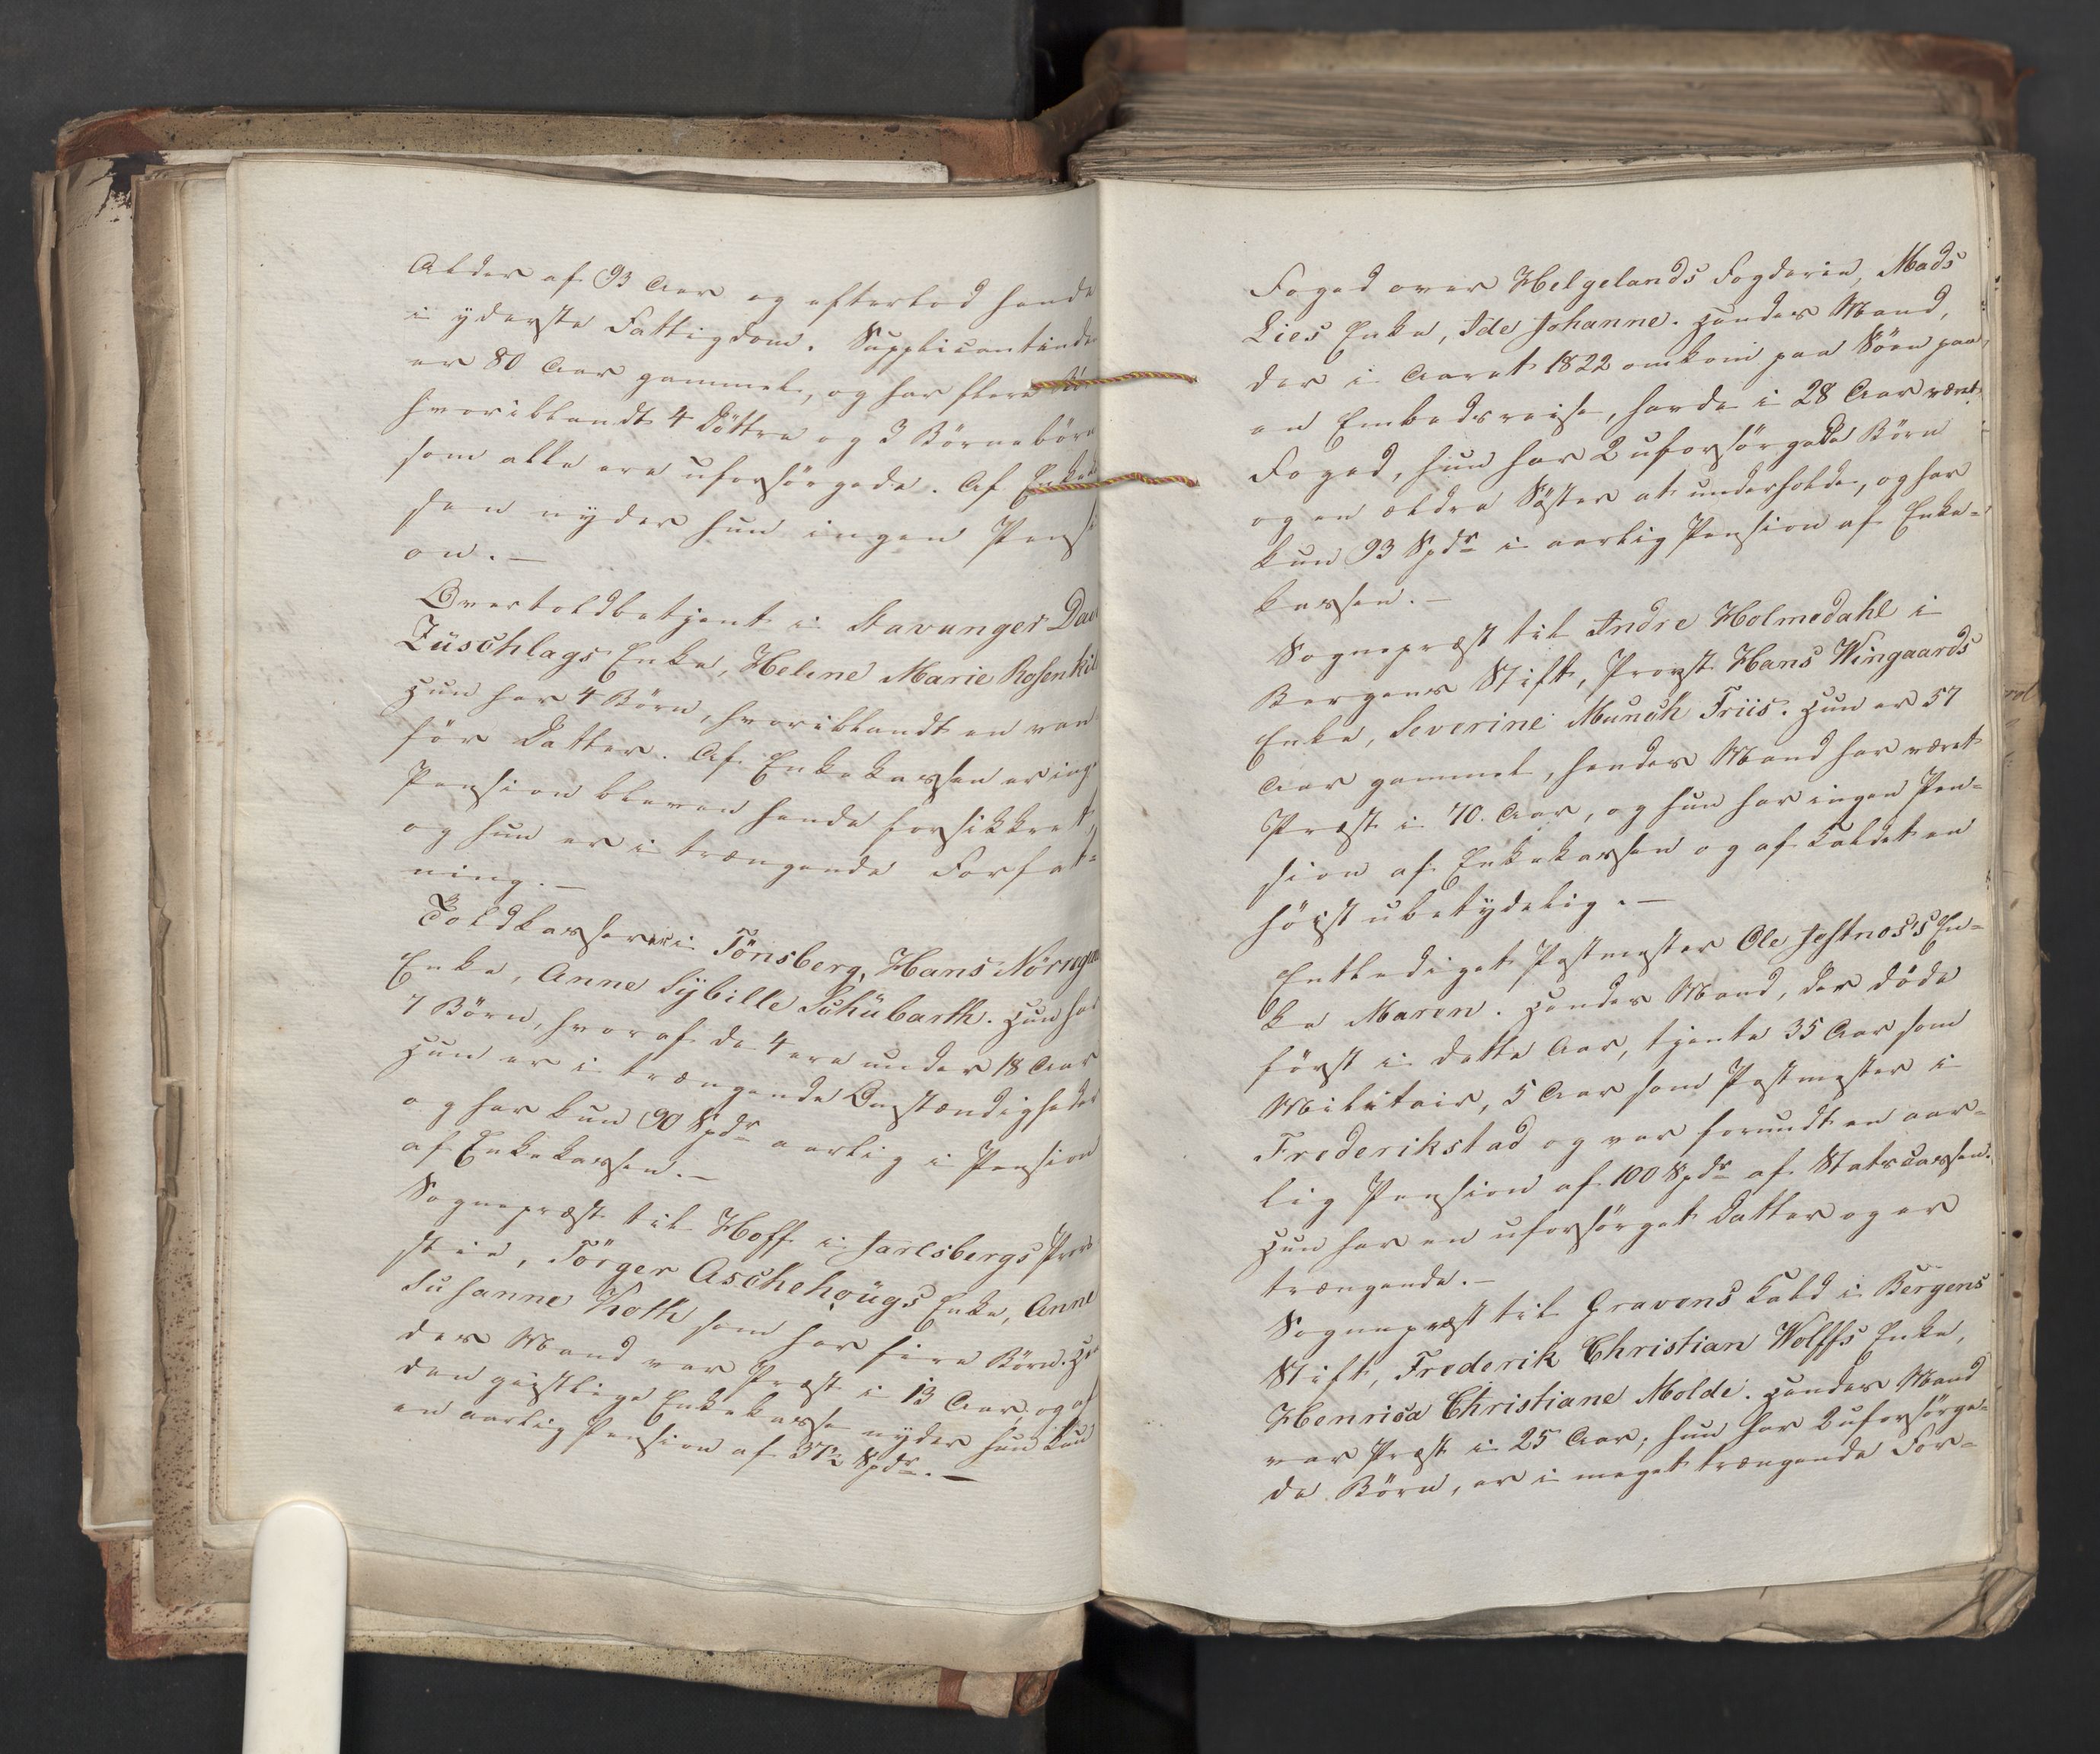 Alder af 93 Aar og efterlod hende
i yderste Fattigdom. Supplicantinden
er 80 Aar gammel, og har flere
hvoriblandt 4 Döttre og 3 Börnebörn
som alle ere uforsörgede. Af Enkekas
sen nyder hun ingen Pensi
on.—
Overtoldbetjent i Stavanger
Züschlags Enke, Helene Marie Rosenkil
Hun har 4 Börn, hvoriblandt en van
för Datter. Af Enkekassen er ing
Pension bleven hende forsikkret,
og hun er i trængende Forfat=
ning.—
Toldkasserer i Tönsberg, Hans Nörregaa
Enke, Anne Sÿbille Schübarth. Hun har
7 Börn, hvoraf de 4 ere under 18 Aar
Hun er i trængende Omstændigheder
og har kun 90 Spdr aarlig i Pension
af Enkekassen.—
Sognepræst til Hoff i Jarlsbergs Prov
stie, Törger Aschehoügs Enke, Anne
Susanne Koth som har fire Börn. Hen
des Mand var Præst i 13 Aar, og af
den geistlige Enkekasse nyder hun kun
en aarlig Pension af 37½ Spdr.—
Foged over Helgelands Fogderie, Mads
Lies Enke, Ide Johanne. Hendes Mand,
der i Aaret 1822 omkom paa Söen paa
en Embedsreise, havde i 28 Aar været
Foged, hun har 2 uforsörgede Börn
og en ældre Söster at underholde, og har
kun 93 Spdr i aarlig Pension af Enke=
kassen.—
Sognepræst til Indre Holmedahl i
Bergens Stift, Provst Hans Wingaards
Enke, Severine Munch Friis. Hun er 57
Aar gammel, hendes Mand har været
Præst i 40. Aar, og hun har ingen Pen=
sion af Enkekassen og af Kaldet en
höist ubetydelig.—
Entlediget Postmester Ole Jestnos's En=
ke Maren. Hendes Mand, der döde
först i dette Aar, tjente 35 Aar som
Militair, 5 Aar som Postmester i
Frederikstad og var forundt en aar=
lig Pension af 100 Spdr af Statscassen.
Hun har en uforsörget Datter og er
trængende.—
Sognepræst til Gravens Kald i Bergens
Stift, Frederik Christian Wolffs Enke,
Henrica Christiane Molde. Hendes Mand
var Præst i 25 Aar; hun har 2 uforsörge=
de Börn, er i meget trængende For=